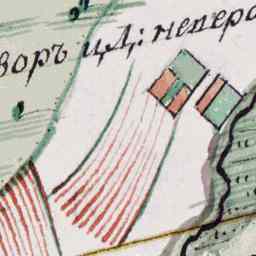 воръ цД: непера